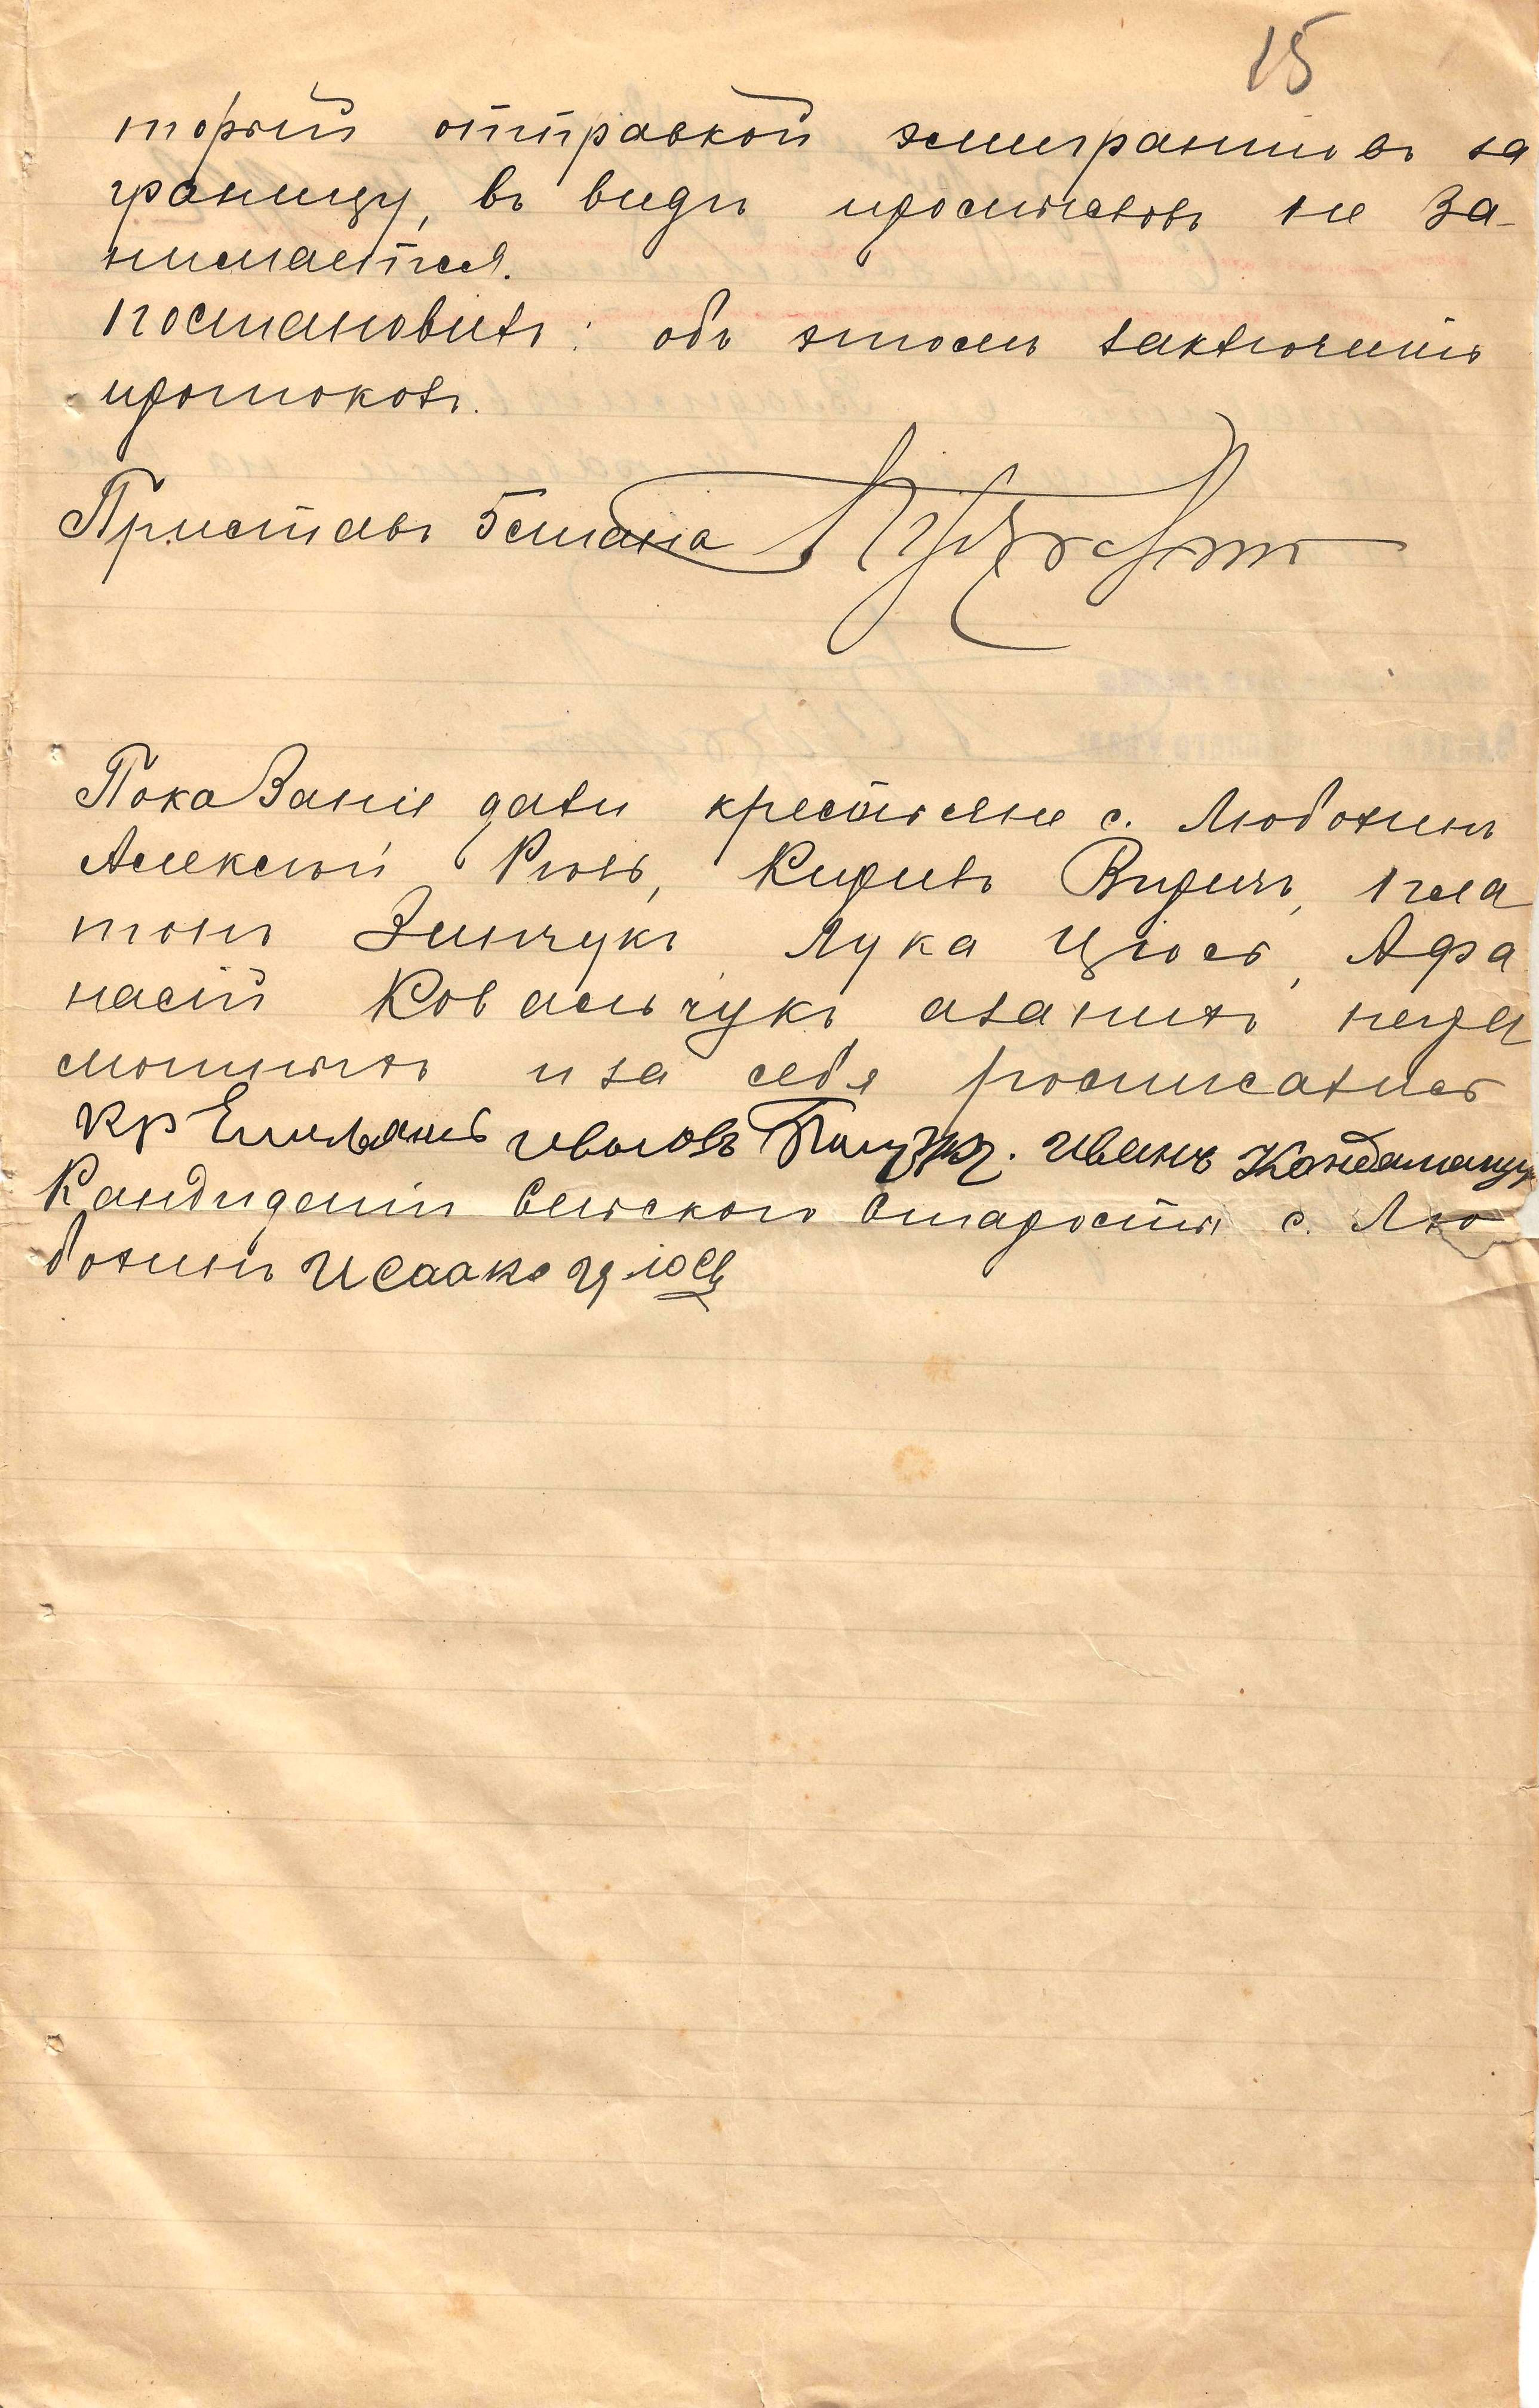 15
торый отправкой эмигрантовъ за
границу, въ виду промысловъ не за-
нимается.
Постановилъ: объ этомъ заключить
протоколъ.
Приставъ 5 стана
Показаніе дали крестьяне с. Любохинъ
Алексѣй Кирилъ Вирич, Пла
тонъ Зинчукъ Лука Цюсь, Афа
насій Ковальчукъ азанихъ негра
мотныхъ и за себя росписались
Кр Емельянъ Ивановъ Иванъ
Кандидатъ Сельскаго Старосты с. Лю
бохинъ Исаакъ Цюсь